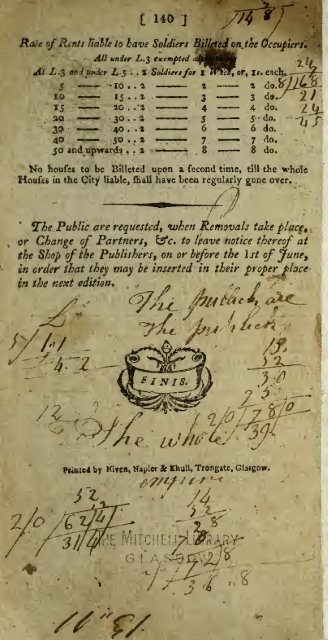 [ 140 ]
Rate of Rents liable to have Soldiers Billeted on the Occupiers.
All under L.3 exempted
At L.3 and under L.5 .. 2 Soldiers for 1 Week, or, 1s. each.
5 — 10 .. 2 — 2 — 2 do.
10 — 15 .. 2 — 3 — 3 do.
15 — 20 .. 2 — 4 — 4 do.
20 — 30 .. 2 — 5 — 5 do.
30 — 40 .. 2 — 6 — 6 do.
40 — 50 .. 2 — 7 — 7 do.
50 and upwards .. 2 — 8 — 8 do.
No houses to be Billeted upon a second time, till the whole
Houses in the City liable, shall have been regularly gone over.
The Public are requested, when Removals take place,
or Change of Partners, &c. to leave notice thereof at
the Shop of the Publishers, on or before the 1st of June,
in order that they may be inserted in their proper place
in the next edition.
The publick are
the publick
FINIS.
The whole
Printed by Niven, Napier & Khull, Trongate, Glasgow.
empire
52
14
52
28
THE MITCHELL LIBRARY
GLASGOW